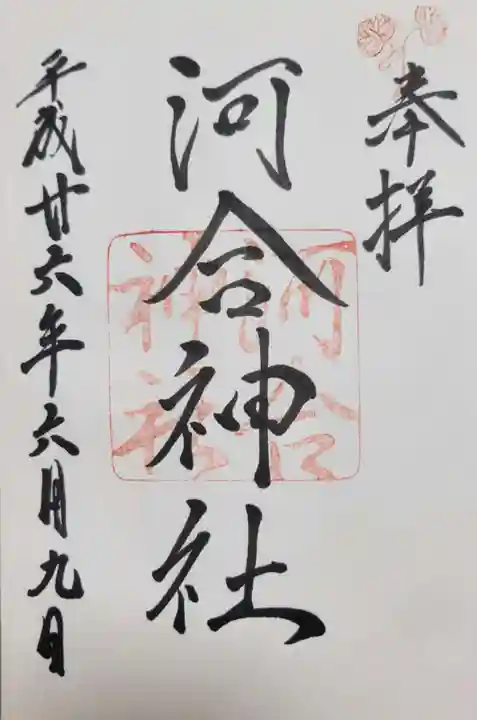 奉拝
河合神社
河合
神社
平成廿六年六月九日